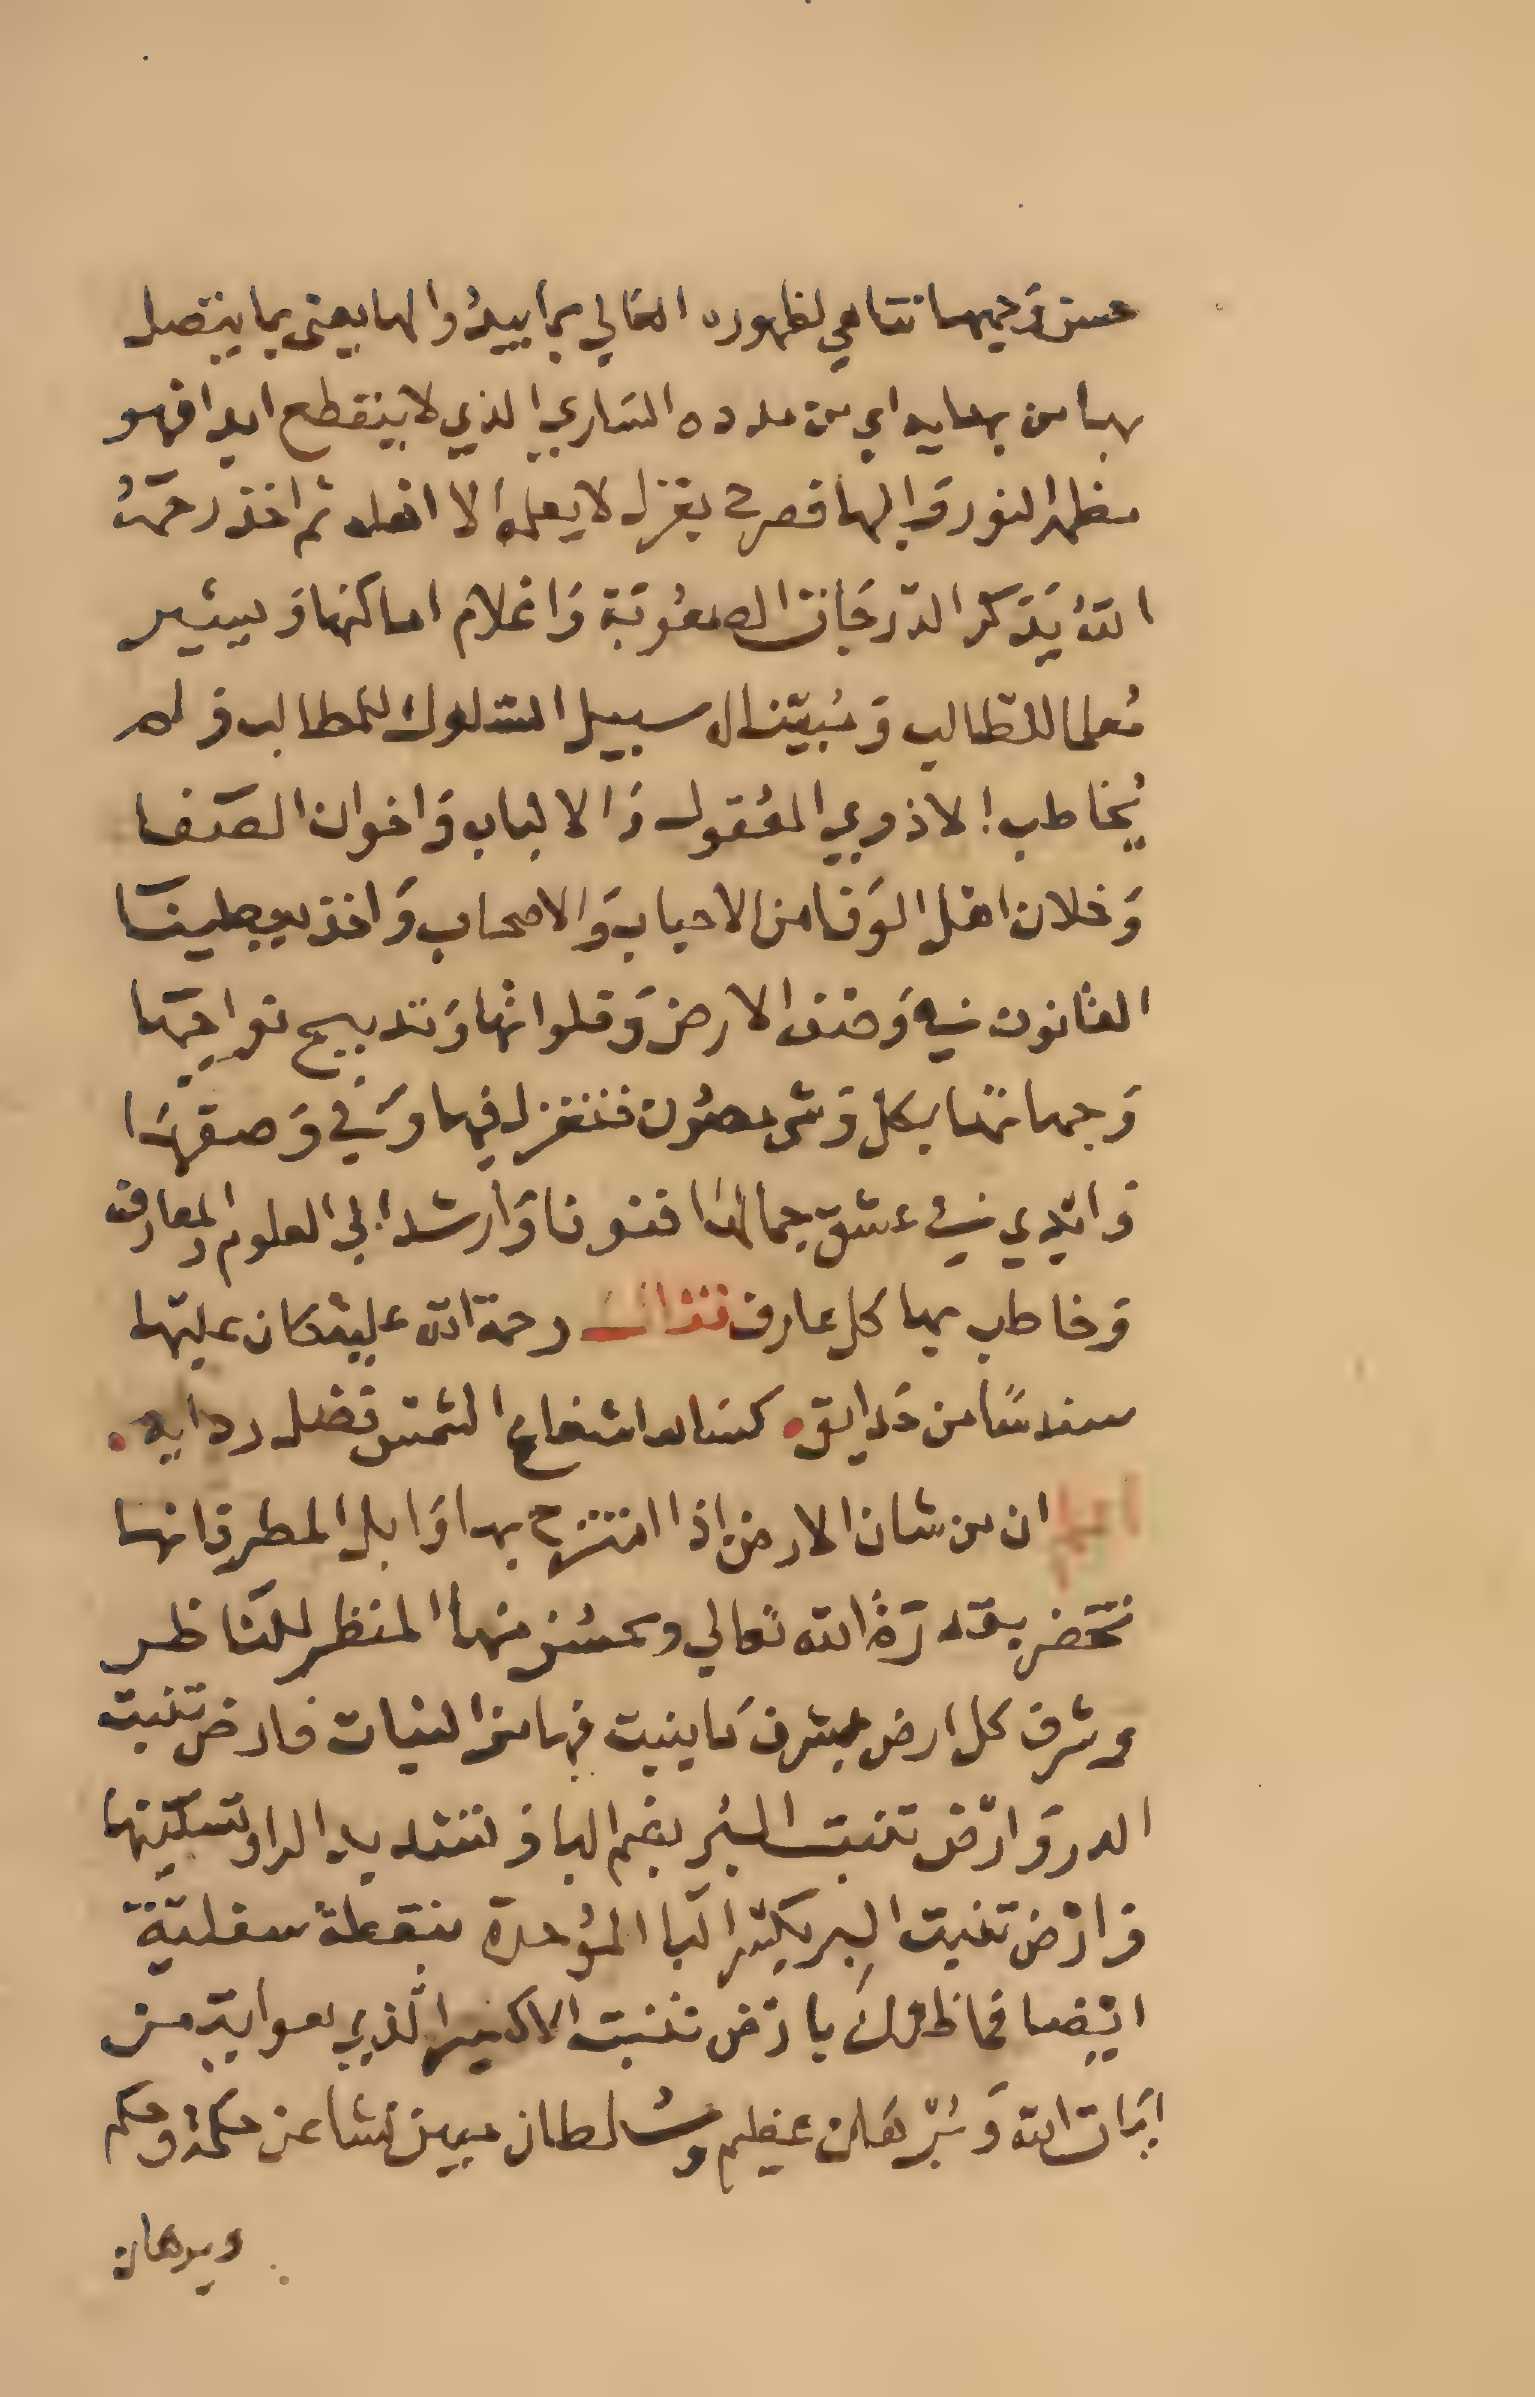 حسن وجيها نتامي لظهوره العالي بما يبدوا لها يعني بما يتصل
بها من بهايه اي من مدده الساري الذي لا ينقطع ابدا فهو
مظهر النور والبها فصرح بغزل لا يعلمه الا اهله ثم اخذ رحمه
الله يذكر الدرجات الصعوبة واعلام اماكنها ويشير
معلما للطالب ومبينا ال سبيل السلوك للمطالب ولم
يخاطب الا ذوي العقول والالباب واخوان الصفا
وخلان اهل الوفا من الاحباب والاصحاب واخذ يعطينا
القانون في وصف الارض وقلواتها وتدبيج نواحيها
وجهاتها بكل وشي مصون فتغزل فيها وفي وصفها
وابدي في عشق جمالها فنونا وارشد الي العلوم والمعارف
وخاطب بها كل عارف فقال رحمة الله عليه كان عليها
سندسا من حدايق كساها شعاع الشمس فضل ردايه
ان من شان الارض اذا امتزج بها وابل المطر فانها
تخضر بقدرة الله تعالي ويحسن منها المنظر للناظر
وشرف كل ارض بشرف ما ينبت فيها من النبات فارض تنبت
الدر وارض تنبت البر بضم البا وتشديد الرا وتسكينها
وارض تنبت البر بكسر البا الموحدة بنقطة سفلية
ايضا فما ظنك بارض تنبت الاكسير الذي هو اية من
ايات الله وبرهان عظيم وسلطان مبين نشا عن حكمة وحكم
وبرهان